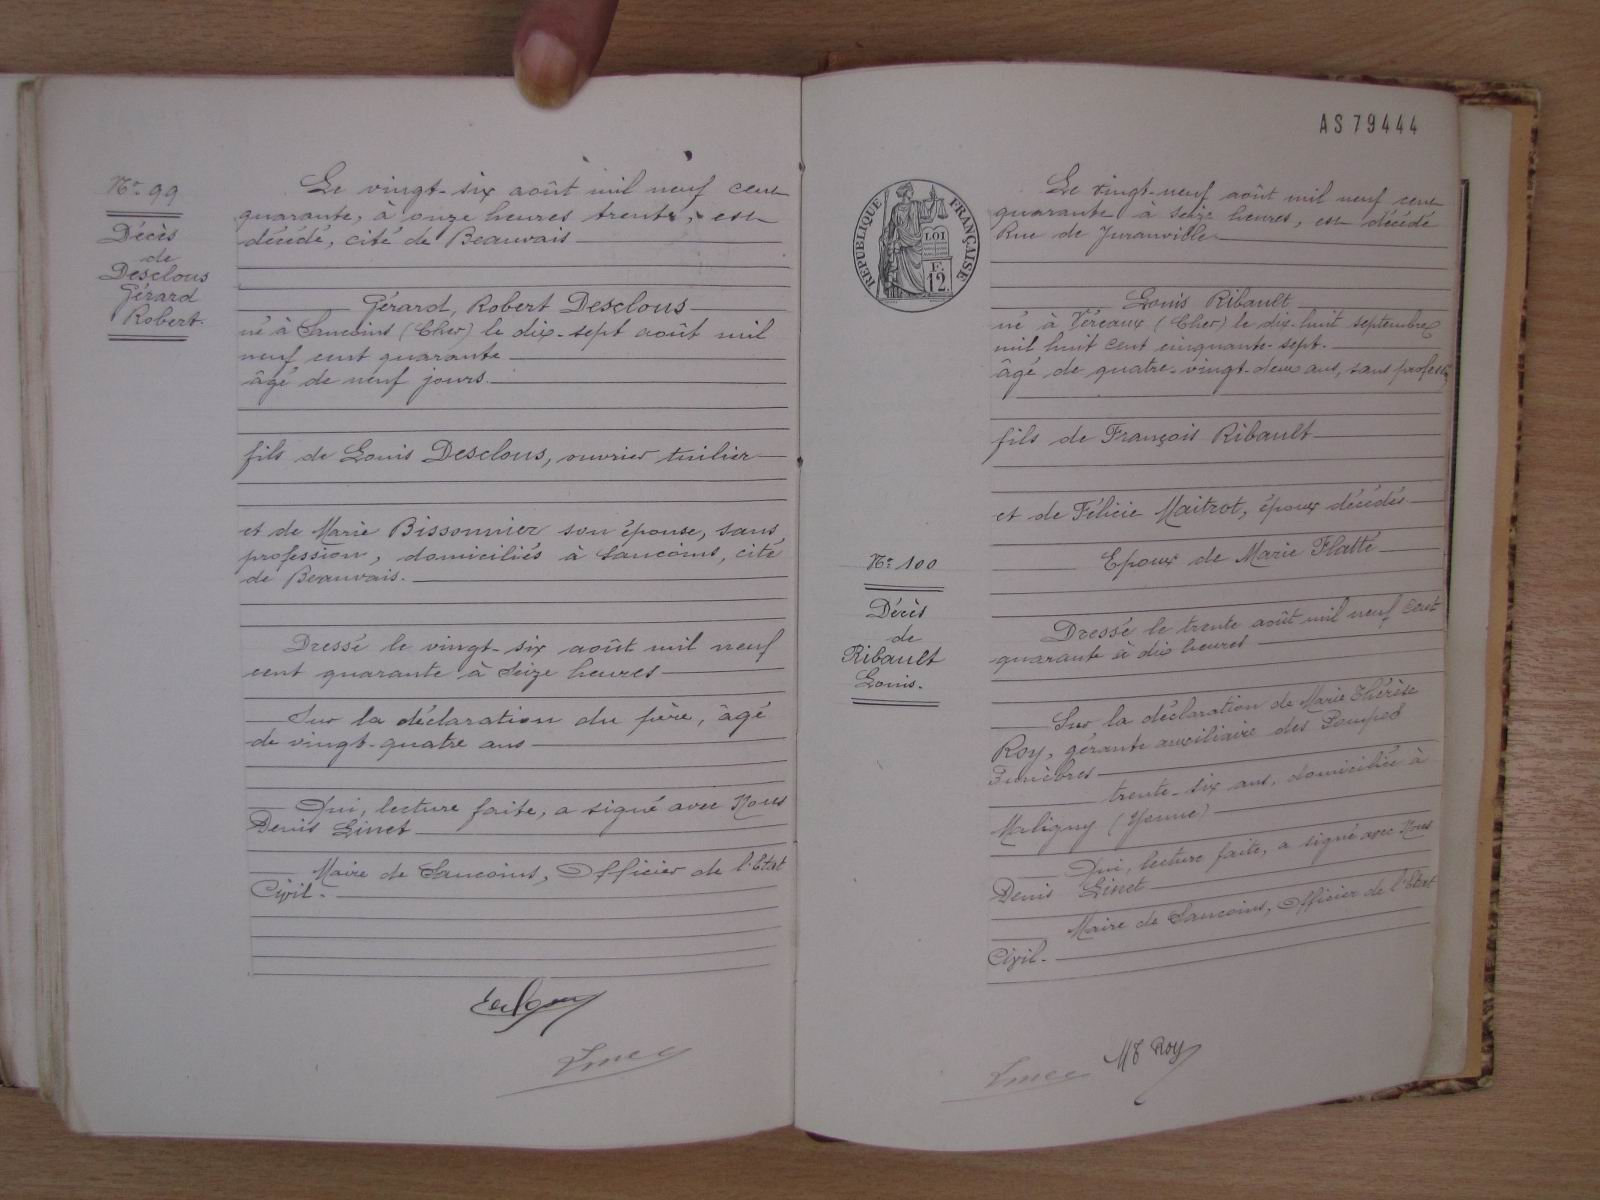 No. 99
Décès
de
Desclous
Gérard
Robert.
Le vingt-six août mil neuf cent
quarante, à onze heures trente, est
décédé, cité de Beauvais
Gérard, Robert Desclous
né à Sancoins (Cher) le dix-sept août mil
neuf cent quarante
âgé de neuf jours.
fils de Louis Desclous, ouvrier tuilier
et de Marie Bissonnier son épouse, sans
profession, domiciliés à Sancoins, cité
de Beauvais.
Dressé le vingt-six août mil neuf
cent quarante à seize heures
Sur la déclaration du père, âgé
de vingt-quatre ans
Qui, lecture faite, a signé avec Nous
Denis Linet
Maire de Sancoins, Officier de l'Etat
Civil.
AS 79444
RÉPUBLIQUE FRANÇAISE
LOI
F.
12.
No. 100
Décès
de
Ribault
Louis.
Le vingt-neuf août mil neuf cent
quarante à seize heures, est décédé
Rue de Juranville
Louis Ribault
né à Véreaux (Cher) le dix-huit septembre
mil huit cent cinquante-sept.
âgé de quatre-vingt-deux ans, sans profession
fils de François Ribault
et de Félicie Maitrot, époux décédés
Epoux de Marie Flatte
Dressé le trente août mil neuf cent
quarante à dix heures
Sur la déclaration de Marie Thérèse
Roy, gérante auxiliaire des Pompes
Funèbres
trente-six ans, domiciliée à
Maligny (Yonne)
Qui, lecture faite, a signé avec Nous
Denis Linet
Maire de Sancoins, Officier de l'Etat
Civil.
Linet
MT Roy